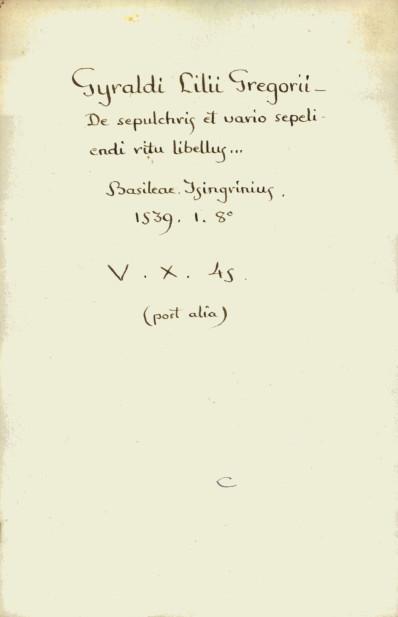 Gyraldi Lilii Gregorii –
De sepulchris et vario sepeli-
endi ritu libellus...
Basileae. Isingrinius.
1539. 1. 8°
V. X. 45.
(post alia)
C